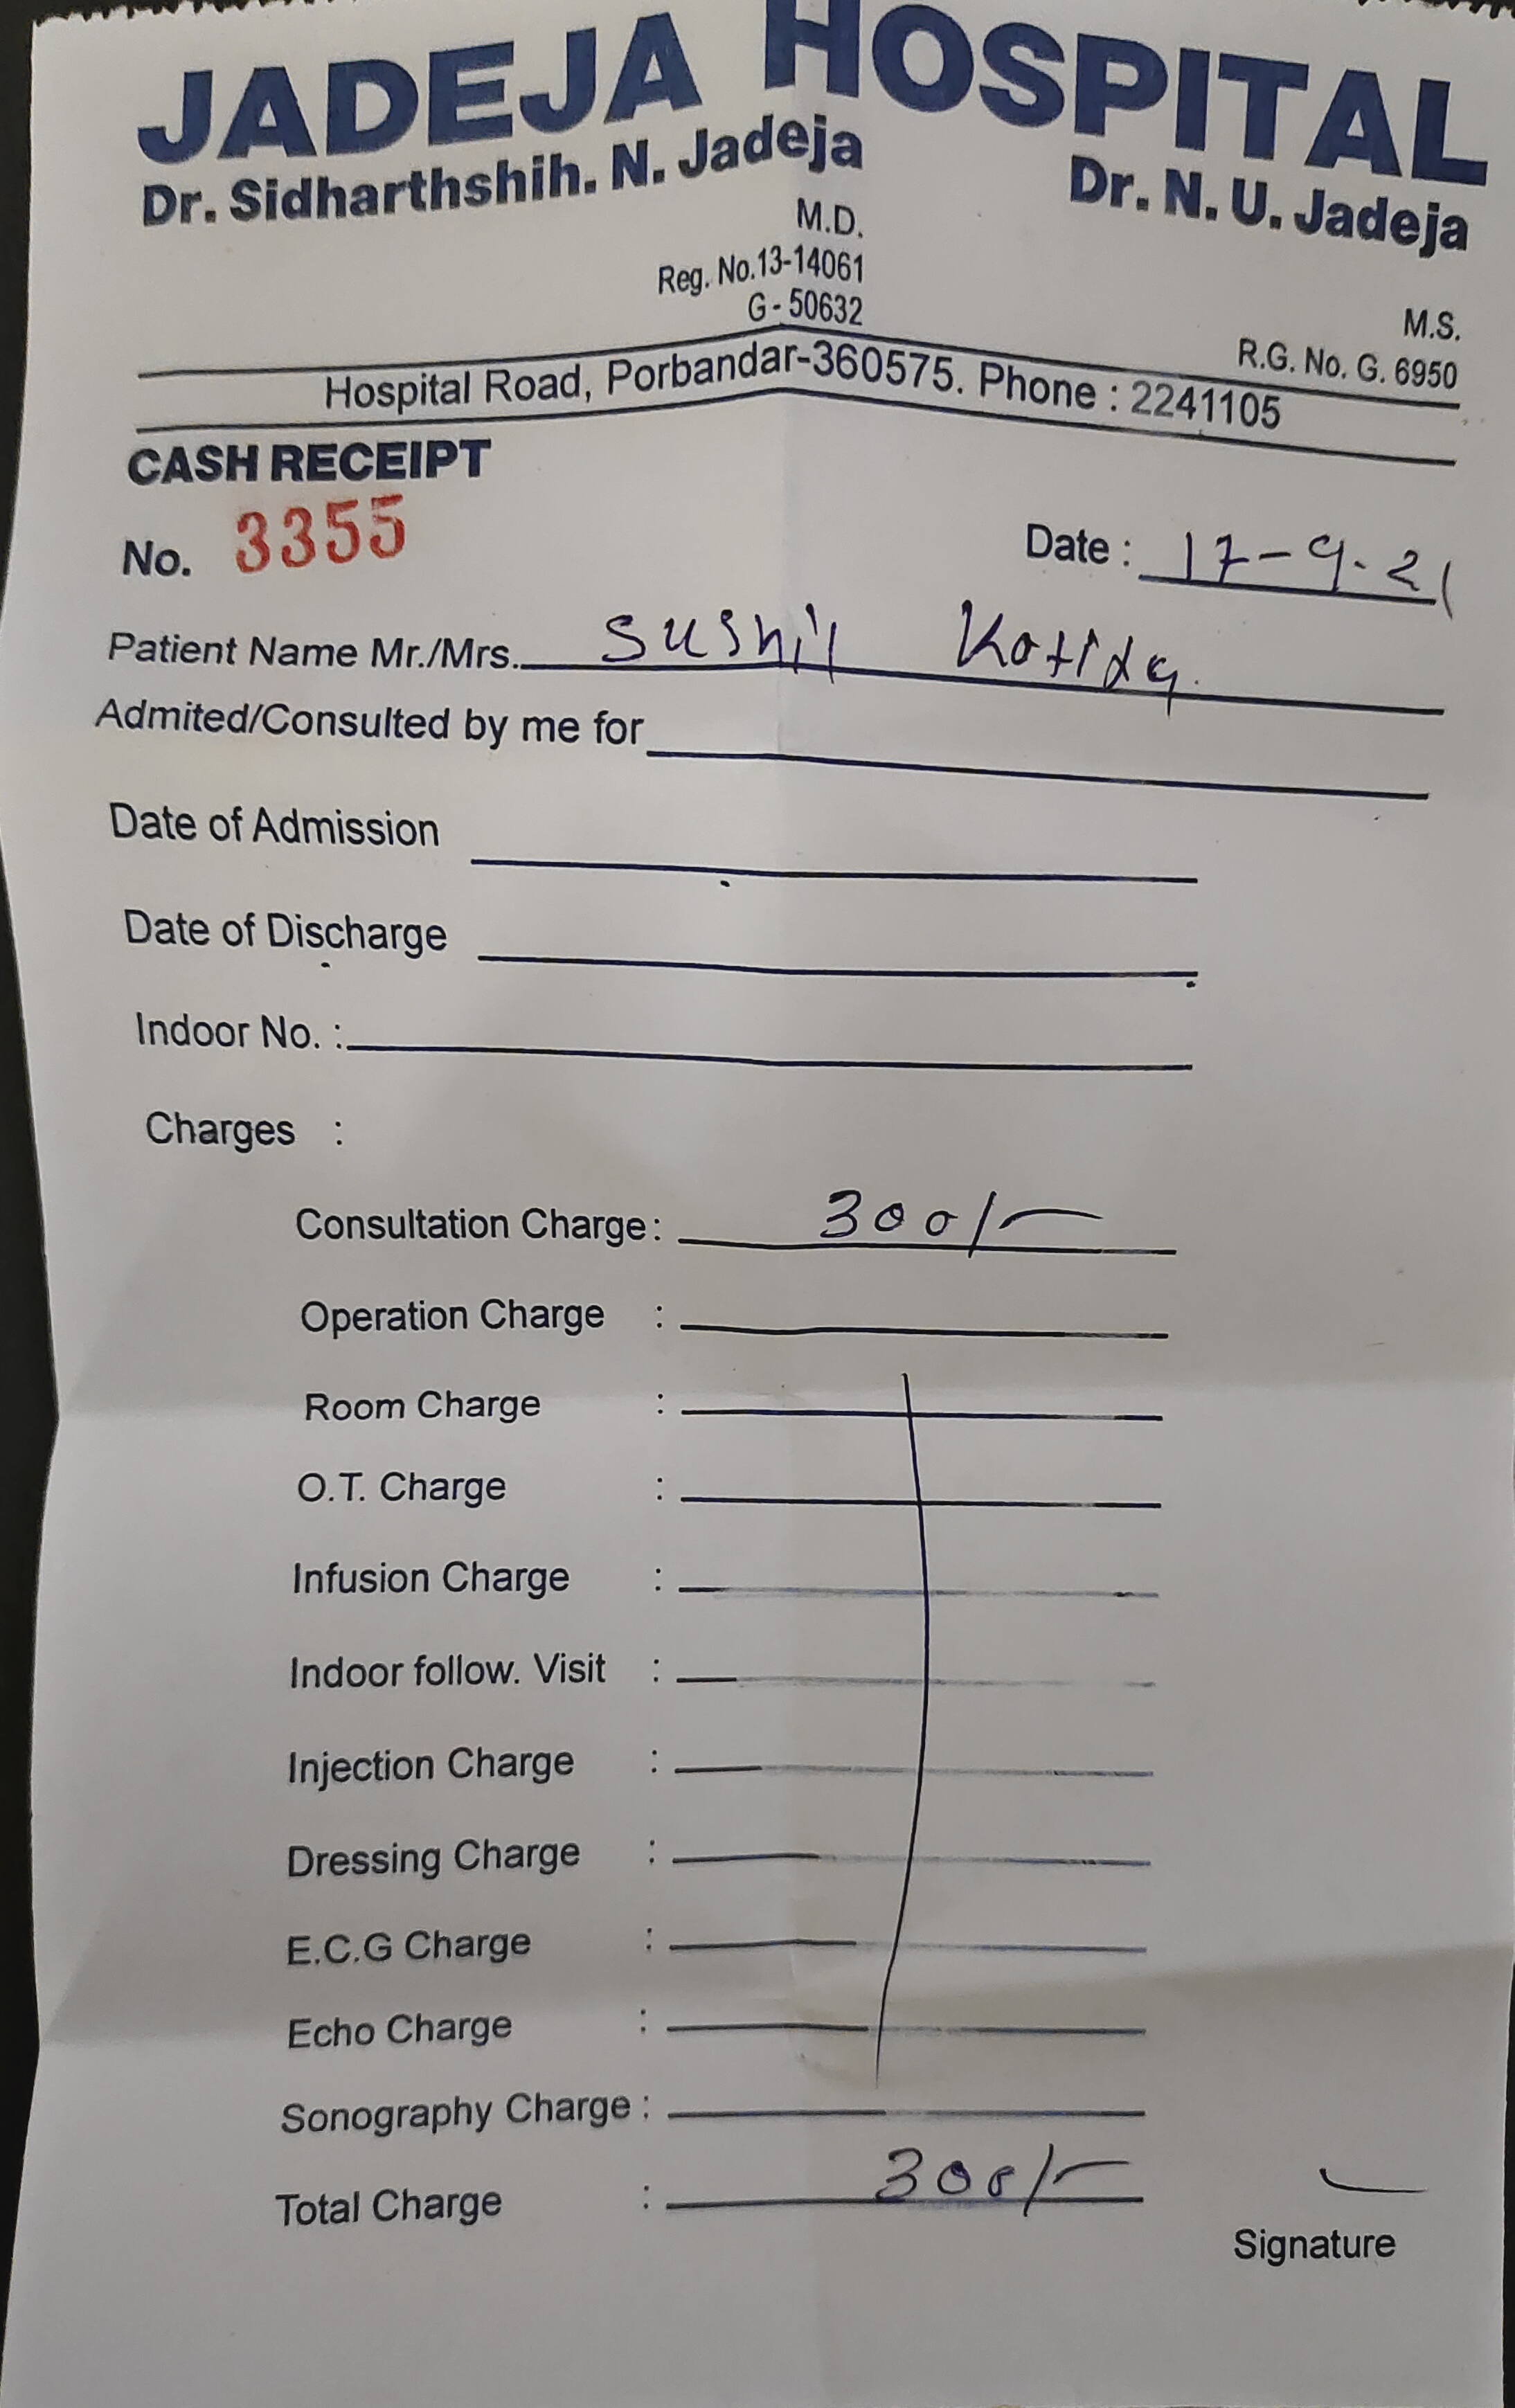 JADEJA HOSPITAL
Dr. Sidharthshih. N. Jadeja
M.D.
Reg. No.13-14061
G - 50632
Dr. N. U. Jadeja
M.S.
R.G. No. G. 6950
Hospital Road, Porbandar-360575. Phone : 2241105
CASH RECEIPT
No. 3355
Date : 17-9-21
Patient Name Mr./Mrs. Sushil
Admited/Consulted by me for
Date of Admission
Date of Discharge
Indoor No. :
Charges :
Consultation Charge : 300/-
Operation Charge :
Room Charge :
O.T. Charge :
Infusion Charge :
Indoor follow. Visit :
Injection Charge :
Dressing Charge :
E.C.G Charge :
Echo Charge :
Sonography Charge :
Total Charge : 300/-
Signature